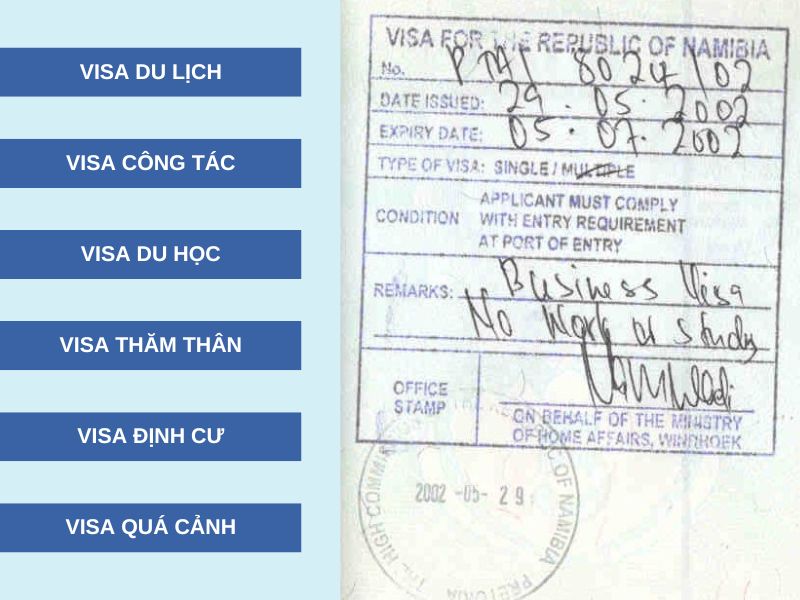 VISA DU LỊCH
VISA CÔNG TÁC
VISA DU HỌC
VISA THĂM THÂN
VISA ĐỊNH CƯ
VISA QUÁ CẢNH
VISA FOR THE REPUBLIC OF NAMIBIA
No. PTA1 8024/02
DATE ISSUED: 29.05.2002
EXPIRY DATE: 05.07.2002
TYPE OF VISA: SINGLE / MULTIPLE
CONDITION
APPLICANT MUST COMPLY
WITH ENTRY REQUIREMENT
AT PORT OF ENTRY
REMARKS: Business Visa
No work or study
OFFICE
STAMP
ON BEHALF OF THE MINISTRY
OF HOME AFFAIRS, WINDHOEK
2002 -05- 29
THE HIGH COMM OF NAMIBIA
PRETORIA